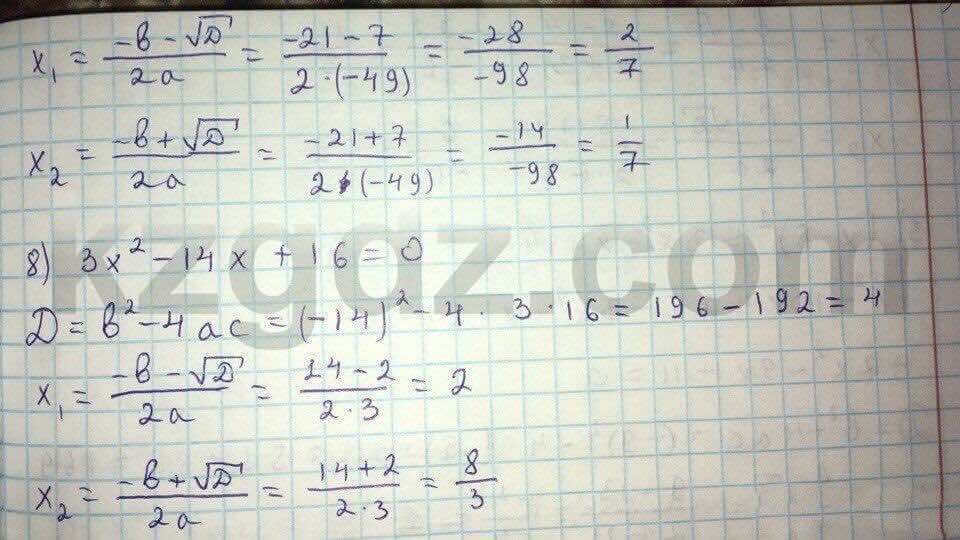 x₁ = (-b - √D)/(2a) = (-21 - 7)/(2·(-49)) = -28/-98 = 2/7
x₂ = (-b + √D)/(2a) = (-21 + 7)/(2·(-49)) = -14/-98 = 1/7
kzgdz.com
8) 3x² - 14x + 16 = 0
Д = b² - 4ac = (-14)² - 4 · 3 · 16 = 196 - 192 = 4
x₁ = (-b - √D)/(2a) = (14 - 2)/(2·3) = 2
x₂ = (-b + √D)/(2a) = (14 + 2)/(2·3) = 8/3